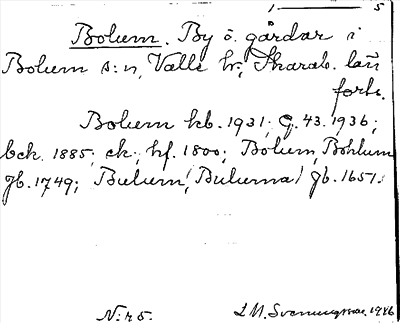 1 — 5
Bolum. By o. gårdar i
Bolum s:n, Valle hr, Skarab. län
forts.
Bolum kb. 1931; G. 43. 1936;
bck. 1885; ck; hf. 1800; Bolum, Bohlum
gb. 1749; Bulum (Buluma) gb. 1651.
N:r 5. L M. Svenungsson. 1946